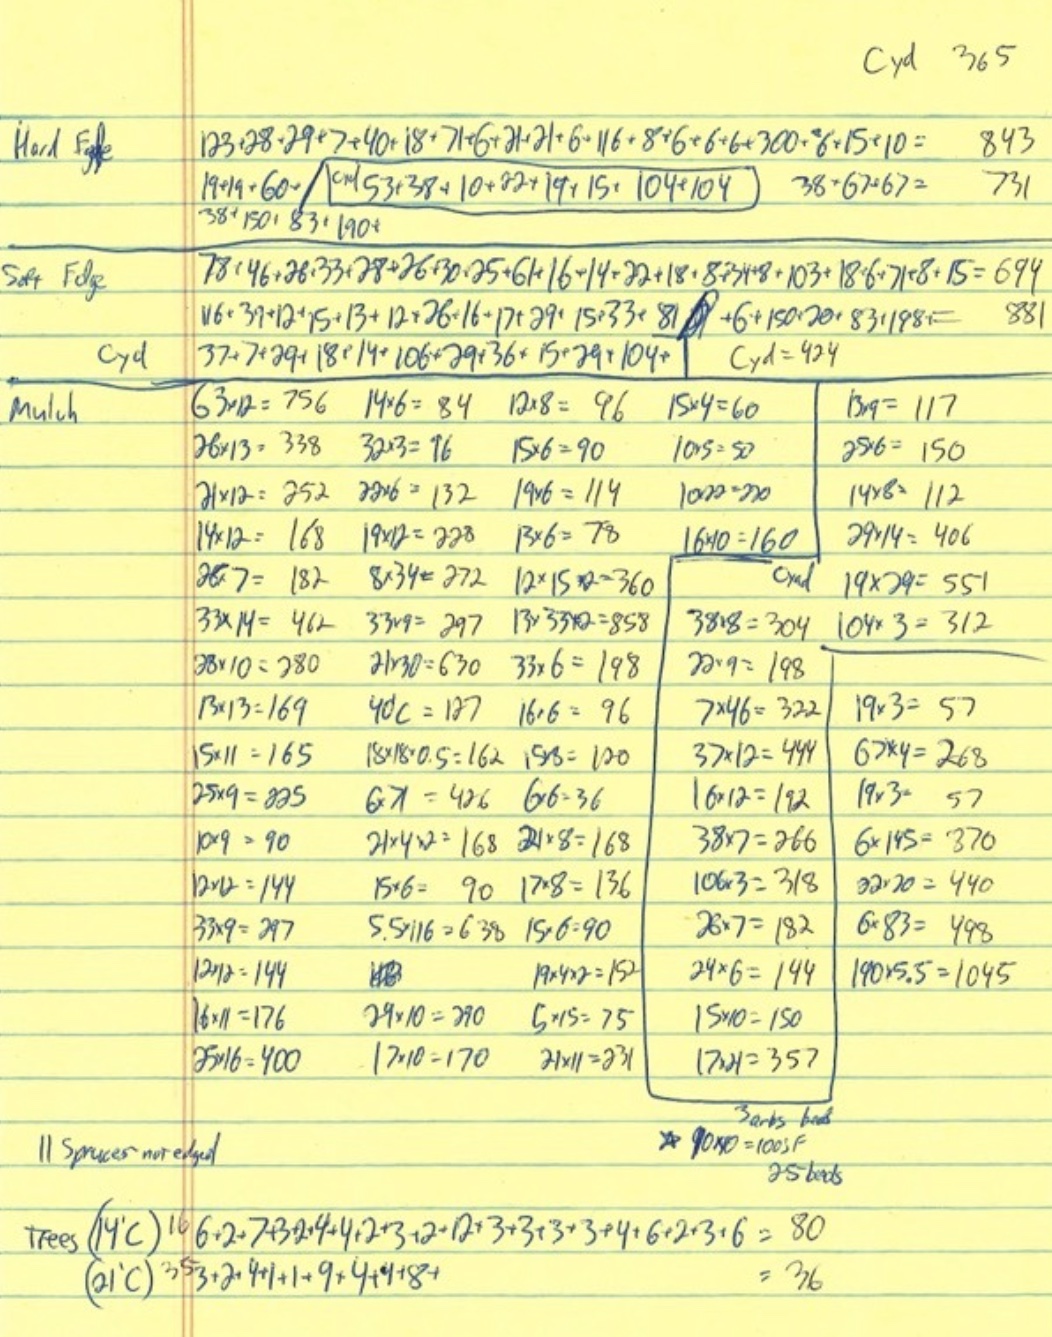 Cyd 365
Hard Edge 123+28+29+7+40+18+71+6+21+21+6+116+8+6+6+6+300+6+15+10= 843
19+19+60+ Cyd 53+38+10+22+19+15+104+104 38+67+67= 731
38+150+83+190+
Soft Edge 78+46+28+33+28+26+30+25+61+16+14+22+18+8+34+8+103+18+6+71+8+15= 694
116+39+12+15+13+12+26+16+17+29+15+33+81 +6+150+20+83+198+= 881
Cyd 37+7+29+18+14+106+29+36+15+29+104+ Cyd=424
Mulch 63x12= 756 14x6= 84 12x8= 96 15x4=60 13x9= 117
26x13= 338 32x3=96 15x6=90 10x5=50 25x6= 150
21x12= 252 22x6= 132 19x6= 114 10x22=220 14x8= 112
14x12= 168 19x12=228 13x6= 78 16x10=160 29x14= 406
26x7= 182 8x34= 272 12x15x2=360 Cyd 19x29= 551
33x14= 462 33x9= 297 13x33x2=858 38x8=304 104x3=312
28x10=280 21x30=630 33x6=198 22x9=198
13x13=169 40'C=127 16x6= 96 7x46=322 19x3= 57
15x11=165 18x18x0.5=162 15x8= 120 37x12=444 67x4=268
25x9=225 6x71=426 6x6=36 16x12=192 19x3= 57
10x9=90 21x4x2=168 21x8=168 38x7=266 6x145=370
12x12=144 15x6= 90 17x8=136 106x3=318 22x20=440
33x9=297 5.5x116=638 15x6=90 26x7=182 6x83= 498
12x12=144 19x4x2=152 24x6=144 190x5.5=1045
16x11=176 29x10=290 5x15=75 15x10=150
25x16=400 17x10=170 21x11=231 17x21=357
3 arbs beds
10x10=100SF
25 beds
11 Spruces not edged
Trees (14'C) 16 6+2+7+3+2+4+4+2+3+2+12+3+3+3+3+4+6+2+3+6 = 80
(21'C) 35 3+2+4+1+1+9+4+4+8+ = 36